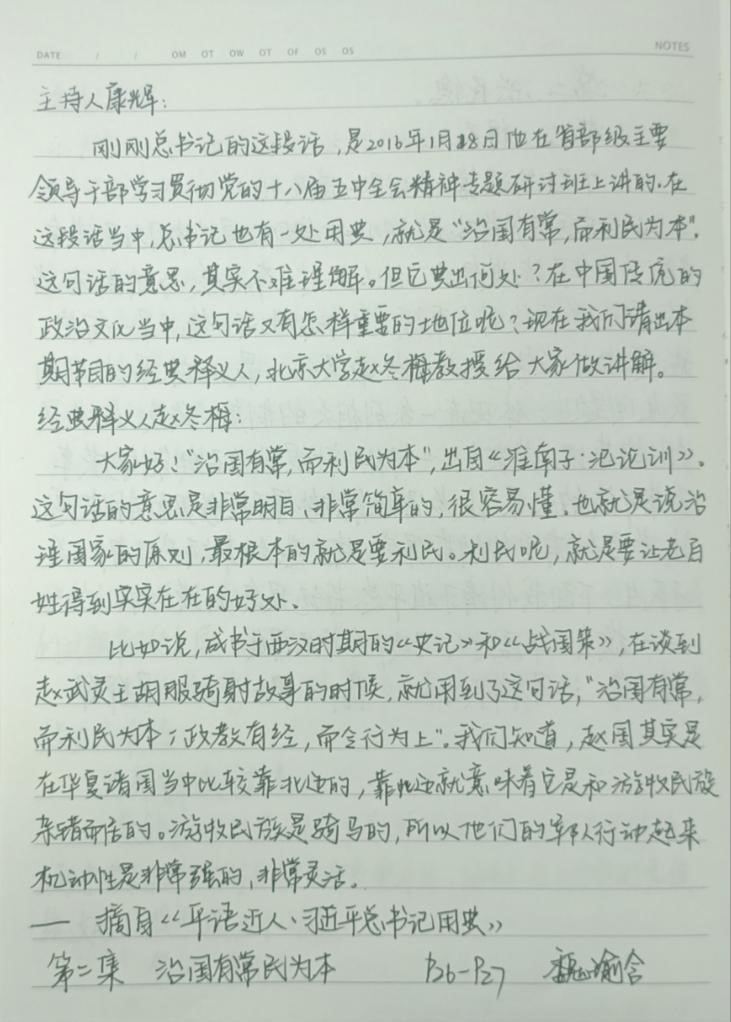 DATE / / OM OT OW OT OF OS OS NOTES
主持人康辉:
刚刚总书记的这段话,是2016年1月18日他在省部级主要
领导干部学习贯彻党的十八届五中全会精神专题研讨班上讲的.在
这段话当中,总书记也有一处用典,就是“治国有常,而利民为本”.
这句话的意思,其实不难理解。但它典出何处?在中国传统的
政治文化当中,这句话又有怎样重要的地位呢?现在我们请出本
期节目的经典释义人,北京大学赵冬梅教授给大家做讲解。
经典释义人赵冬梅:
大家好!“治国有常,而利民为本”,出自《淮南子·氾论训》。
这句话的意思是非常明白、非常简单的,很容易懂.也就是说治
理国家的原则,最根本的就是要利民。利民呢,就是要让老百
姓得到实实在在的好处、
比如说,成书于西汉时期的《史记》和《战国策》,在谈到
赵武灵王胡服骑射故事的时候,就用到了这句话,“治国有常,
而利民为本;政教有经,而令行为上”.我们知道,赵国其实是
在华夏诸国当中比较靠北边的,靠北边就意味着它是和游牧民族
杂错而居的。游牧民族是骑马的,所以他们的军队行动起来
机动性是非常强的,非常灵活。
—— 摘自《平语近人·习近平总书记用典》
第二集 治国有常民为本 P26-P27 魏瑜含